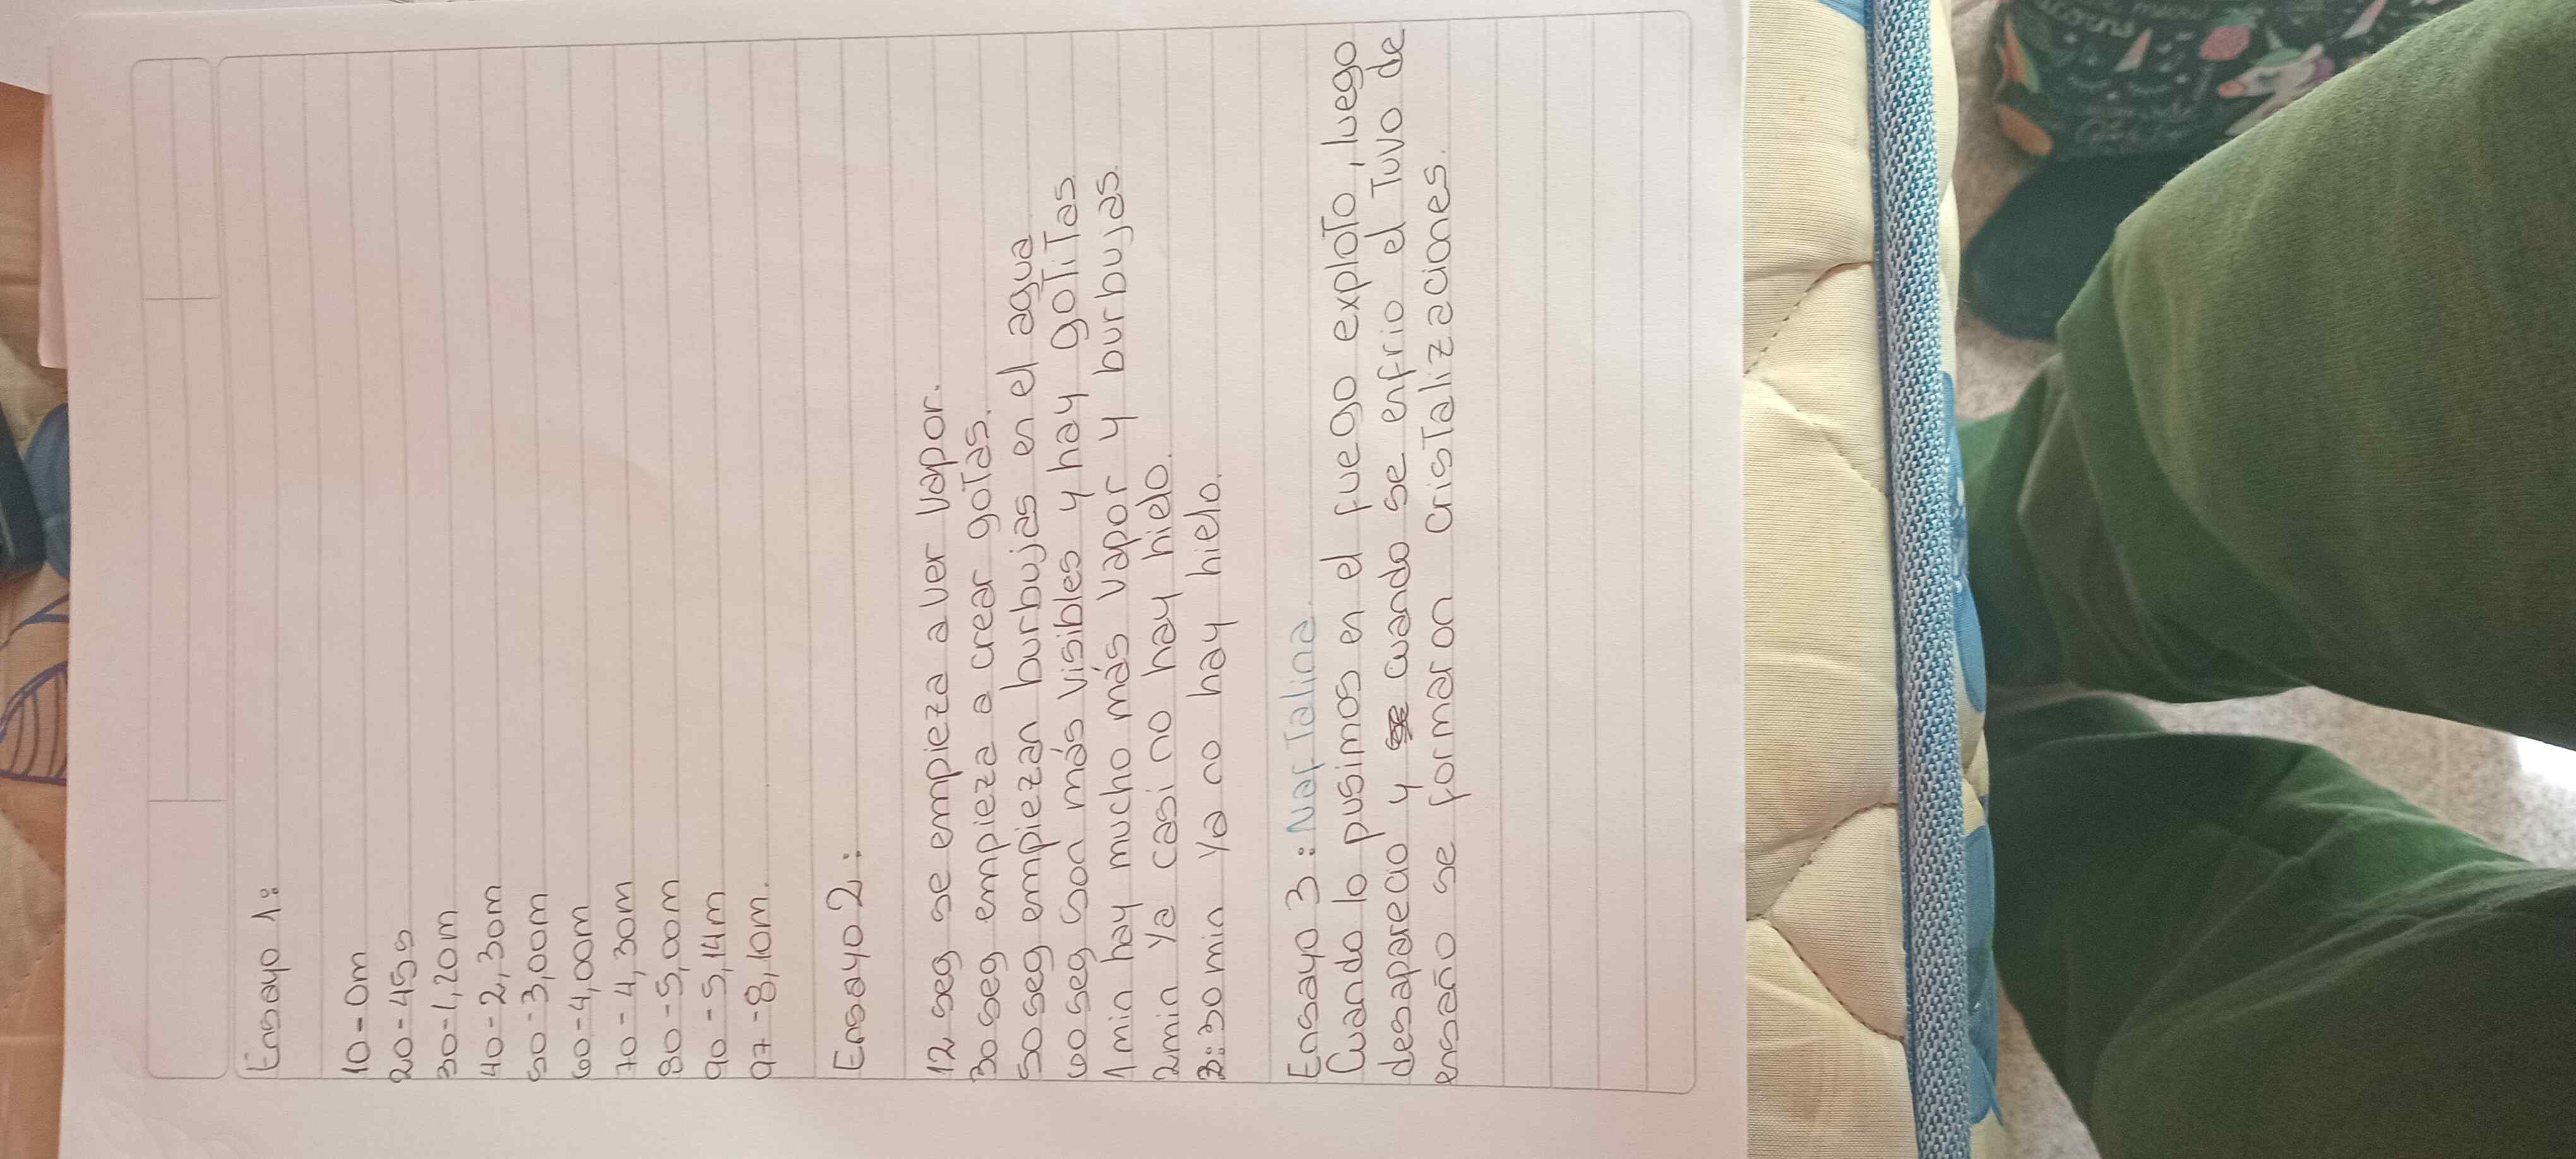 Ensayo 1:
10-0m
20-45s
30-1,20m
40-2,30m
50-3,00m
60-4,00m
70-4,30m
80-5,00m
90-5,14m
97-8,10m.
Ensayo 2:
12 seg se empieza a ver vapor.
30 seg empieza a crear gotas.
50 seg empiezan burbujas en el agua
60 seg son más visibles y hay gotitas
1 min hay mucho más vapor y burbujas.
2min ya casi no hay hielo.
2:30 min ya no hay hielo.
Ensayo 3: Naftalina.
Cuando lo pusimos en el fuego exploto, luego
desaparecio y cuando se enfrio el tuvo de
ensaño se formaron cristalizaciones.